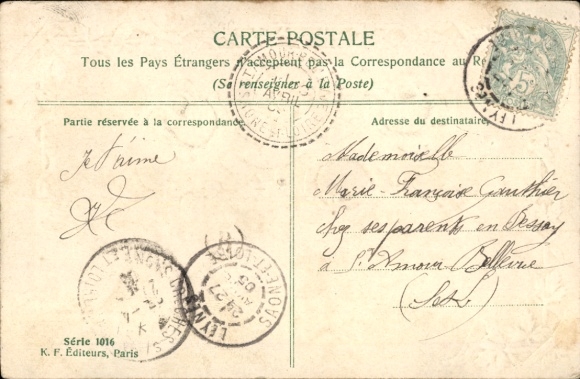 CARTE POSTALE
Tous les Pays Étrangers n'acceptent pas la Correspondance au
(Se renseigner à la Poste)
Partie réservée à la correspondance
Adresse du destinataire
Je t'aime
Mademoiselle
Marie-Françoise Gauthier
chez ses parents en
à St Amour Bellevue
(S&L)
AVRIL
LEYNES
SAONE-ET-LOIRE
5c
Série 1016
K. F. Éditeurs, Paris